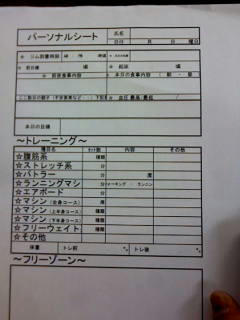 パーソナルシート
氏名
日付 月 日 曜日
★ ジム到着時刻 時 分
★ 前日寝 頃 ★ 起床 頃
★ 前夜食事内容 ★ 本日の食事内容 ( 朝 ・ 昼
★ 血圧 最高/最低 /
本日の目標
～トレーニング～
種目名 セット数 内容 その他
☆腹筋系 種類
☆ストレッチ系 分
☆バトラー 分 周
☆ランニングマシ 分 ウォーキング / ランニン
☆エアボード 分
☆マシン (全身コース) 周 種類
☆マシン (上半身コース) 種類
☆マシン (下半身コース) 種類
☆フリーウェイト 種類
☆その他
体重 トレ前 ㌔ トレ後 ㌔
～フリーゾーン～